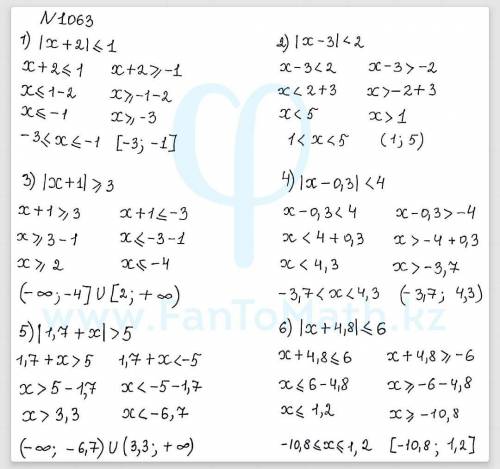 N 1063
1) |x+2| ⩽ 1
x+2 ⩽ 1   x+2 ⩾ -1
x ⩽ 1-2   x ⩾ -1-2
x ⩽ -1   x ⩾ -3
-3 ⩽ x ⩽ -1   [-3; -1]
2) |x-3| < 2
x-3 < 2   x-3 > -2
x < 2+3   x > -2+3
x < 5   x > 1
1 < x < 5   (1; 5)
3) |x+1| ⩾ 3
x+1 ⩾ 3   x+1 ⩽ -3
x ⩾ 3-1   x ⩽ -3-1
x ⩾ 2   x ⩽ -4
(-∞; -4] ∪ [2; +∞)
4) |x-0,3| < 4
x-0,3 < 4   x-0,3 > -4
x < 4+0,3   x > -4+0,3
x < 4,3   x > -3,7
-3,7 < x < 4,3   (-3,7; 4,3)
www.FanToMath.kz
5) |1,7+x| > 5
1,7+x > 5   1,7+x < -5
x > 5-1,7   x < -5-1,7
x > 3,3   x < -6,7
(-∞; -6,7) ∪ (3,3; +∞)
6) |x+4,8| ⩽ 6
x+4,8 ⩽ 6   x+4,8 ⩾ -6
x ⩽ 6-4,8   x ⩾ -6-4,8
x ⩽ 1,2   x ⩾ -10,8
-10,8 ⩽ x ⩽ 1,2   [-10,8; 1,2]